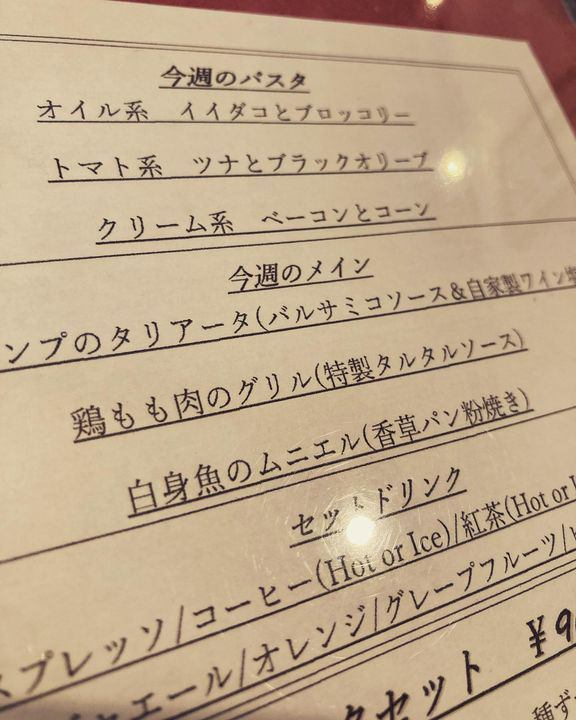 今週のパスタ
オイル系　イイダコとブロッコリー
トマト系　ツナとブラックオリーブ
クリーム系　ベーコンとコーン
今週のメイン
ンプのタリアータ(バルサミコソース&自家製ワイン塩
鶏もも肉のグリル(特製タルタルソース)
白身魚のムニエル(香草パン粉焼き)
セットドリンク
スプレッソ/コーヒー(Hot or Ice)/紅茶(Hot or I
エール/オレンジ/グレープフルーツ/
クセット　¥9
種ず